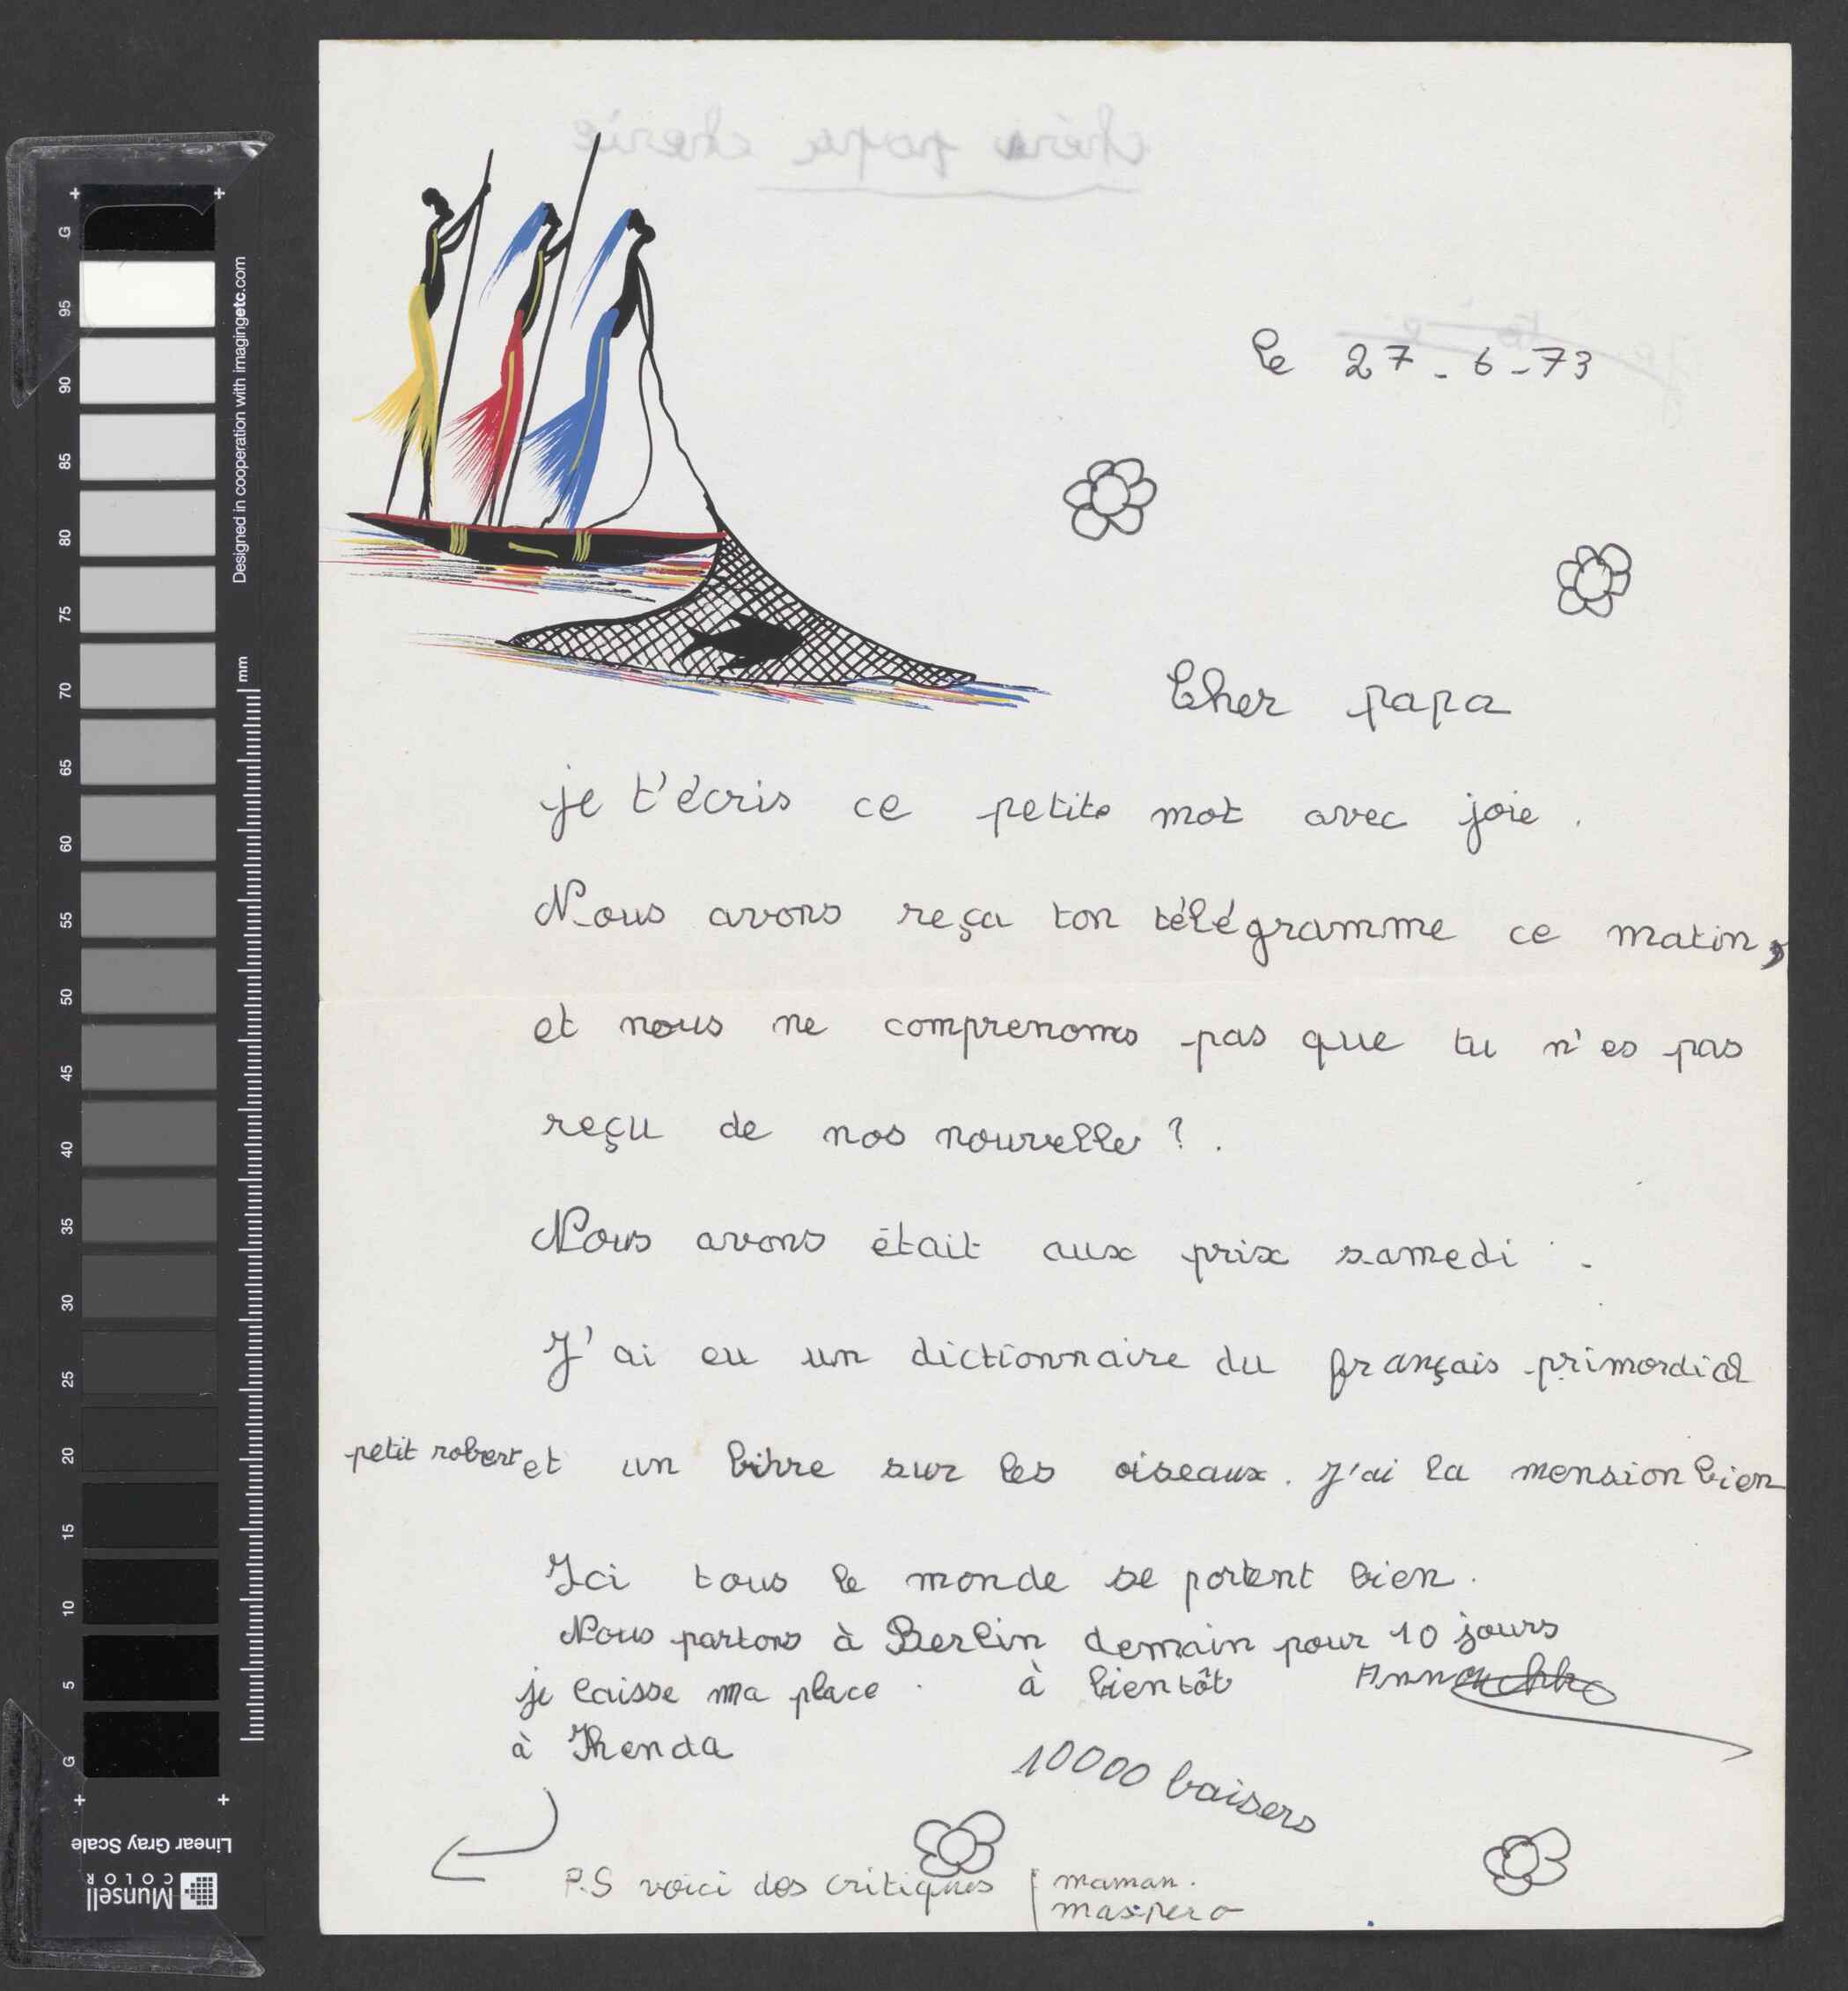 le 27-6-73
Cher papa
je t'écris ce petits mot avec joie.
Nous avons reça ton télégramme ce matin,
et nous ne comprenons pas que tu n'es pas
reçu de nos nouvelles ?.
Nous avons était aux prix samedi.
J'ai eu un dictionnaire du français primordial
petit robert et un livre sur les oiseaux. J'ai la mension bien
Ici tous le monde se portent bien.
Nous partons à Berlin demain pour 10 jours
je laisse ma place. à bientôt Annouchka
à Henda
10000 baisers
P.S voici des critiques maman.
maspero
G
95
90
85
80
75
70
65
60
55
50
45
40
35
30
25
20
15
10
5
G
mm
Designed in cooperation with imagingetc.com
Linear Gray Scale
Munsell
COLOR